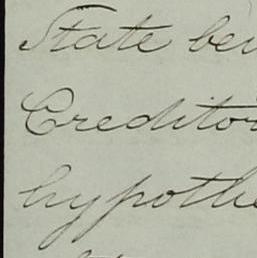 State bei
Creditor
hypothe